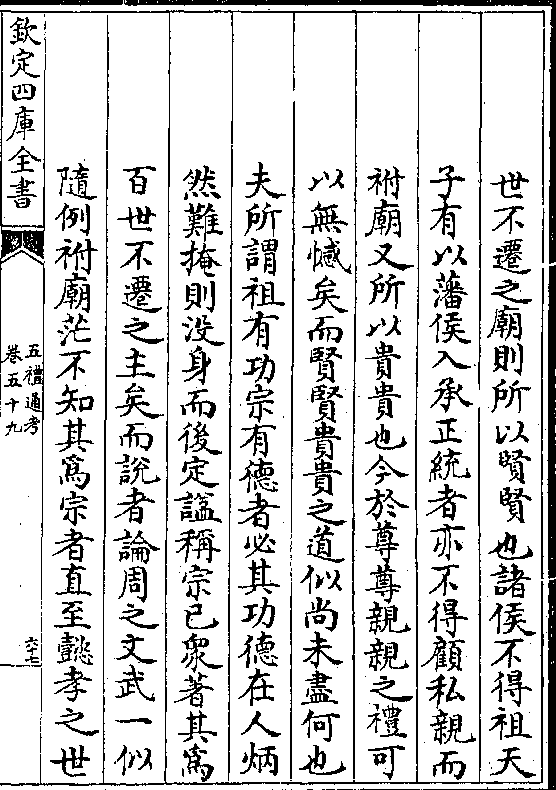 世不遷之廟則所以賢賢也諸侯不得祖天
子有以藩侯入承正統者亦不得顧私親而
祔廟又所以貴貴也今於尊尊親親之禮可
以無憾矣而賢賢貴貴之道似尚未盡何也
夫所謂祖有功宗有德者必其功德在人炳
然難掩則没身而後定諡稱宗已衆著其爲
百世不遷之主矣而說者論周之文武一似
隨例祔廟茫不知其爲宗者直至懿孝之世
欽定四庫全書
五禮通考
卷五十九
六十七